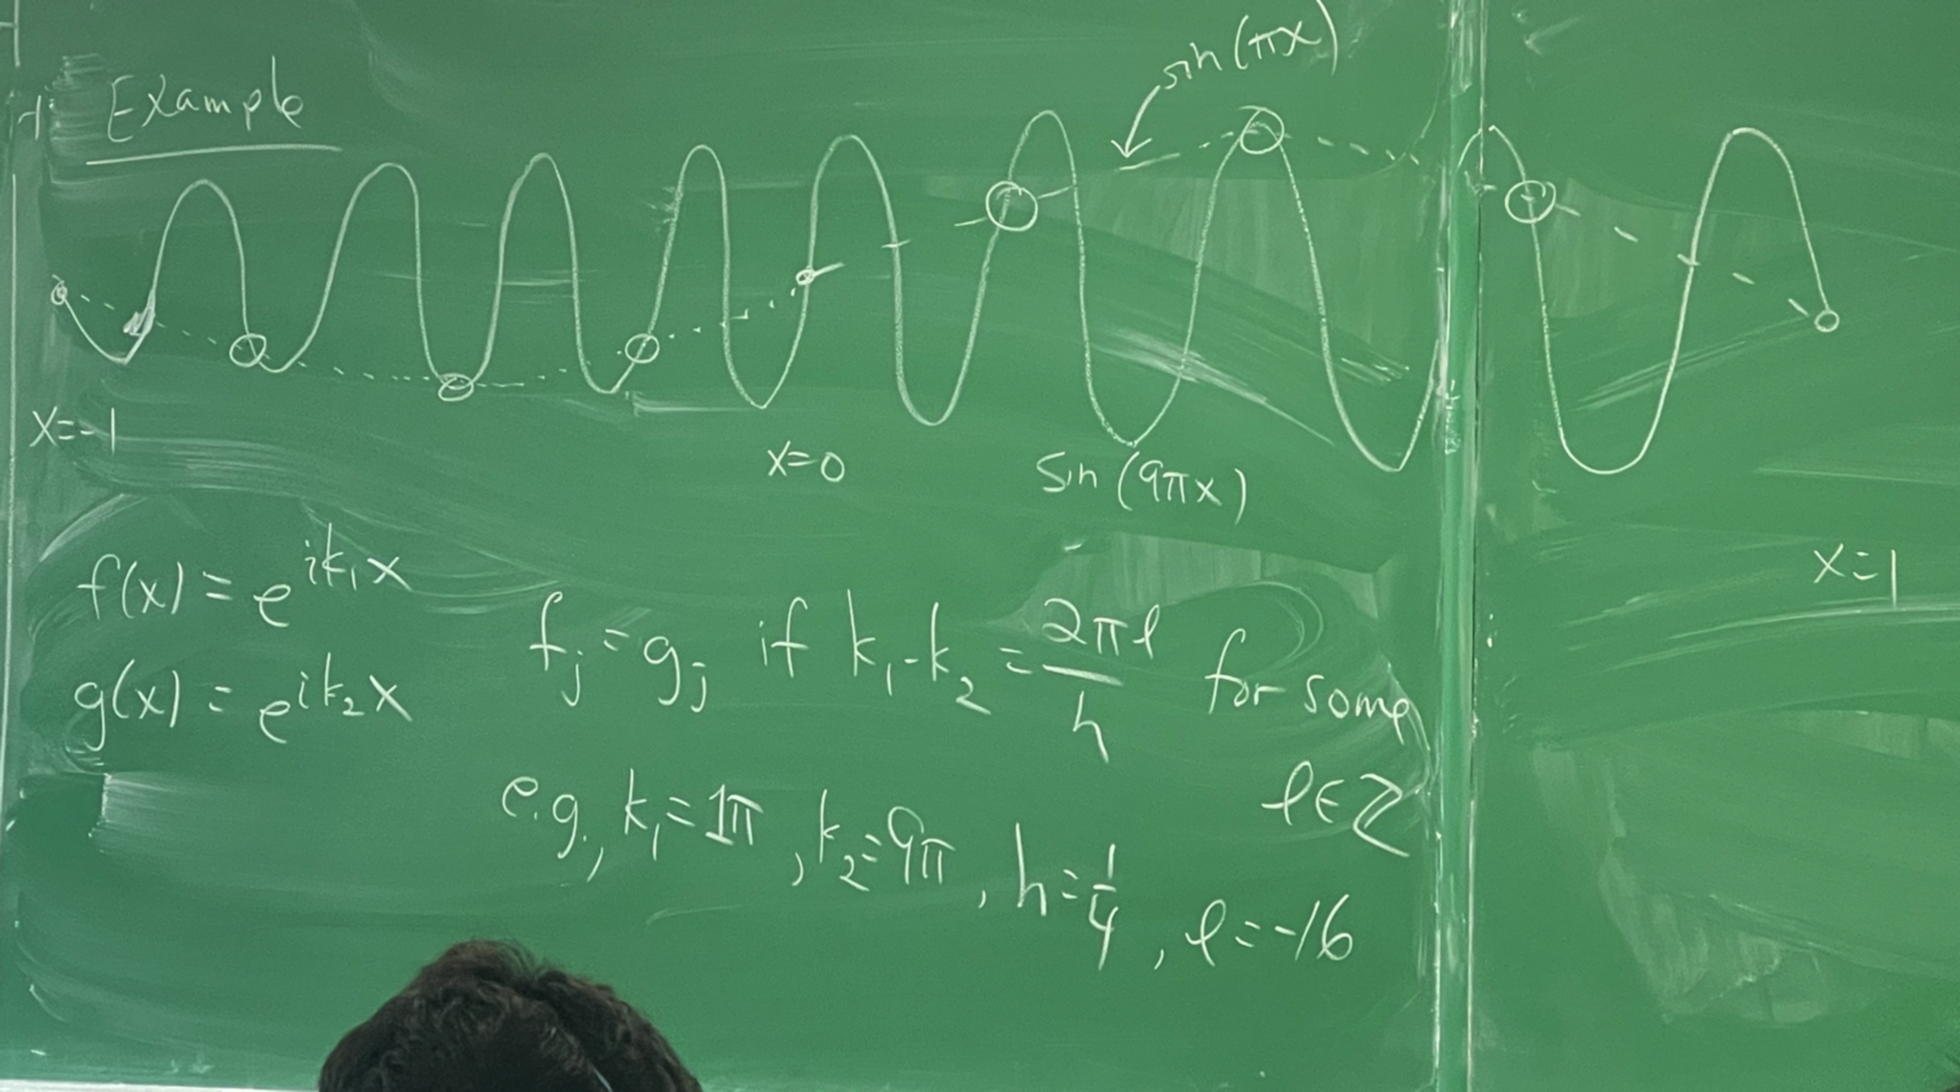 Example
sin(πx)
x=-1
x=0
sin(9πx)
x=1
f(x) = e^{ik₁x}
g(x) = e^{ik₂x}
f_j = g_j if k₁-k₂ = 2πℓ/h for some
ℓ∈ℤ
e.g., k₁=1π, k₂=9π, h=1/4, ℓ=-16